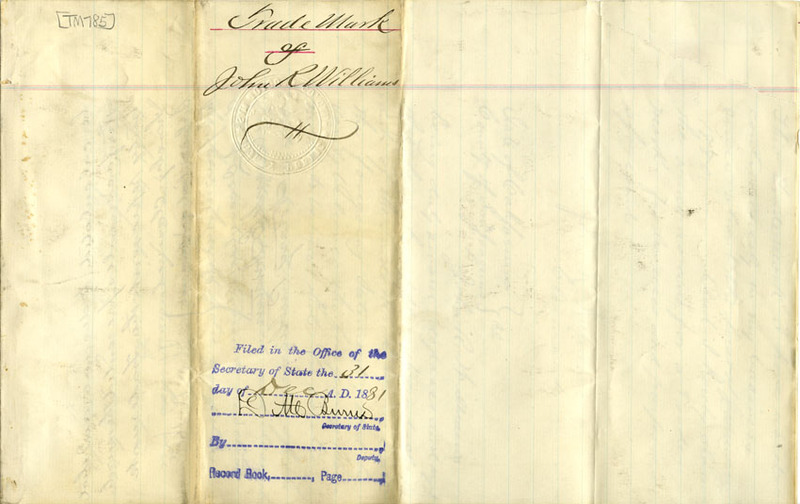 [TM785]
Trade Mark
of
John R Williams
Filed in the Office of the
Secretary of State the 31
day of Dec A. D. 1881
D. M. Burns
Secretary of State.
By
Deputy.
Record Book, , Page